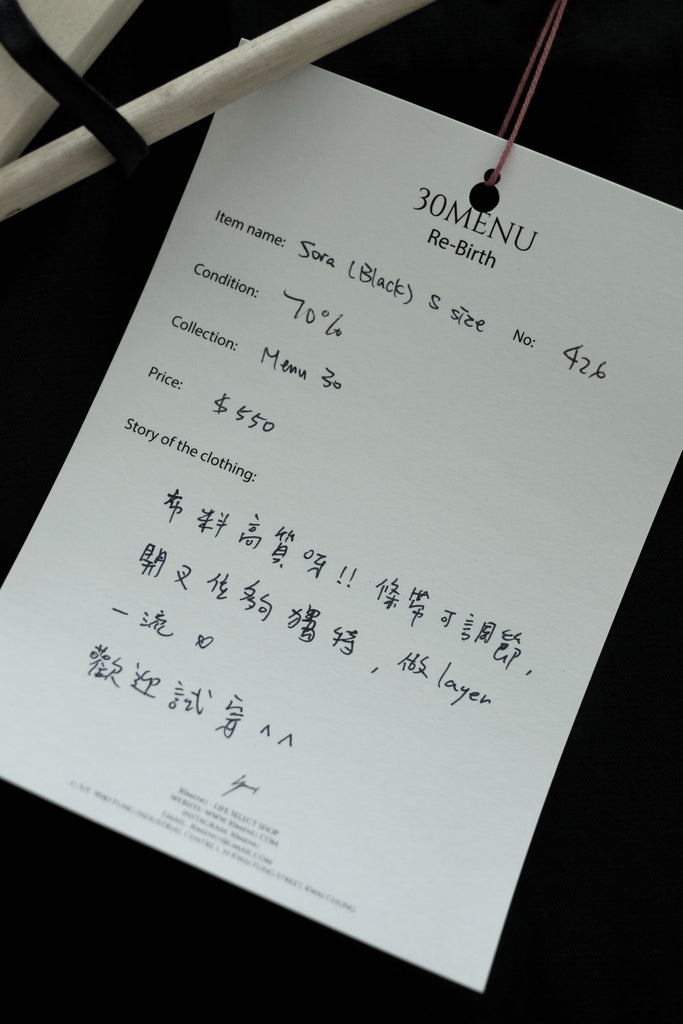 30MENU
Re-Birth
Item name: Sora (Black) S size No: 426
Condition: 70%
Collection: Menu 30
Price: $550
Story of the clothing:
布料高質呀!! 條帶可調節,
開叉位夠獨特, 做layer
一流
歡迎試穿^^
30MENU - LIFE SELECT SHOP
WEBSITE: WWW.30MENU.COM
INSTAGRAM: 30MENU
EMAIL: 30MENU@GMAIL.COM
WAI FUNG INDUSTRIAL CENTRE STREET KWAI CHUNG